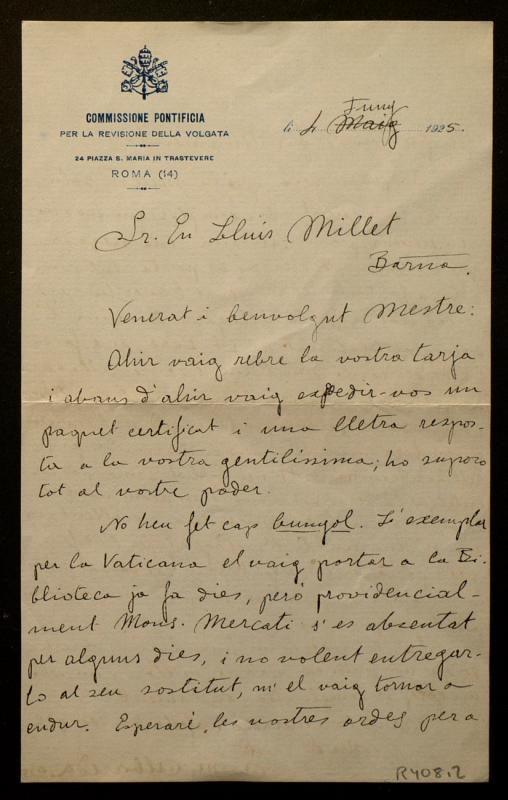 COMMISSIONE PONTIFICIA
PER LA REVISIONE DELLA VOLGATA
24 PIAZZA S. MARIA IN TRASTEVERE
ROMA (14)
Juny
li 4 Maig 1925.
Sr. En Lluís Millet
Barna.
Venerat i benvolgut Mestre:
Ahir vaig rebre la vostra tarja
i abans d'ahir vaig expedir-vos un
paquet certificat i una lletra respos-
ta a la vostra gentilíssima; ho suposo
tot al vostre poder.
No heu fet cap bunyol. L'exemplar
per la Vaticana el vaig portar a la Bi-
blioteca ja fa dies, però providencial-
ment Mons. Mercati s'es absentat
per alguns dies, i no volent entregar-
lo al seu sostitut, m'el vaig tornar a
endur. Esperaré les vostres ordes per a
R408.2